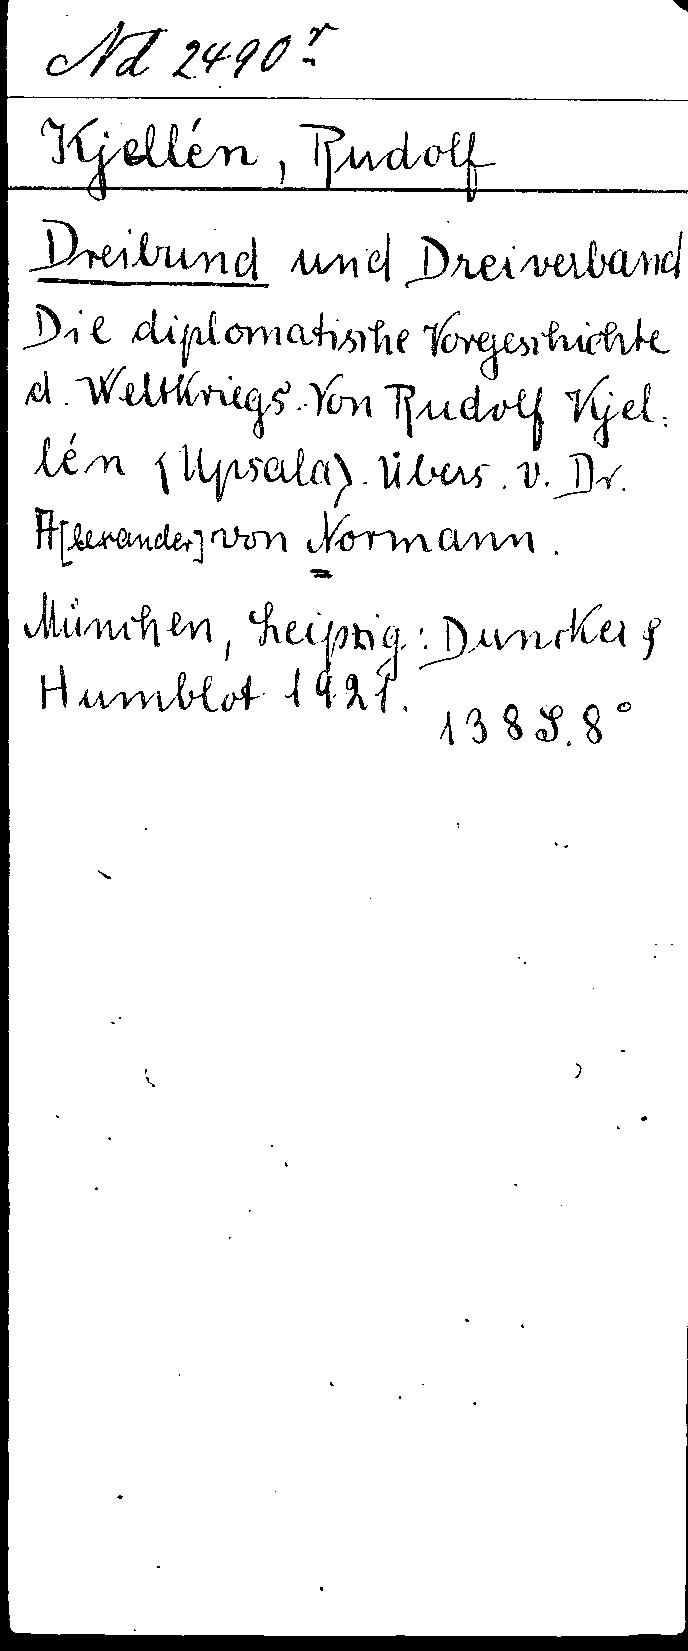 Nd 2490 r
Kjellén, Rudolf
Dreibund und Dreiverband
Die diplomatische Vorgeschichte
d. Weltkriegs. Von Rudolf Kjel-
lén (Upsala). Übers. v. Dr.
A[lexander] von Normann.
München, Leipzig: Duncker &
Humblot 1921.
138 S. 8°